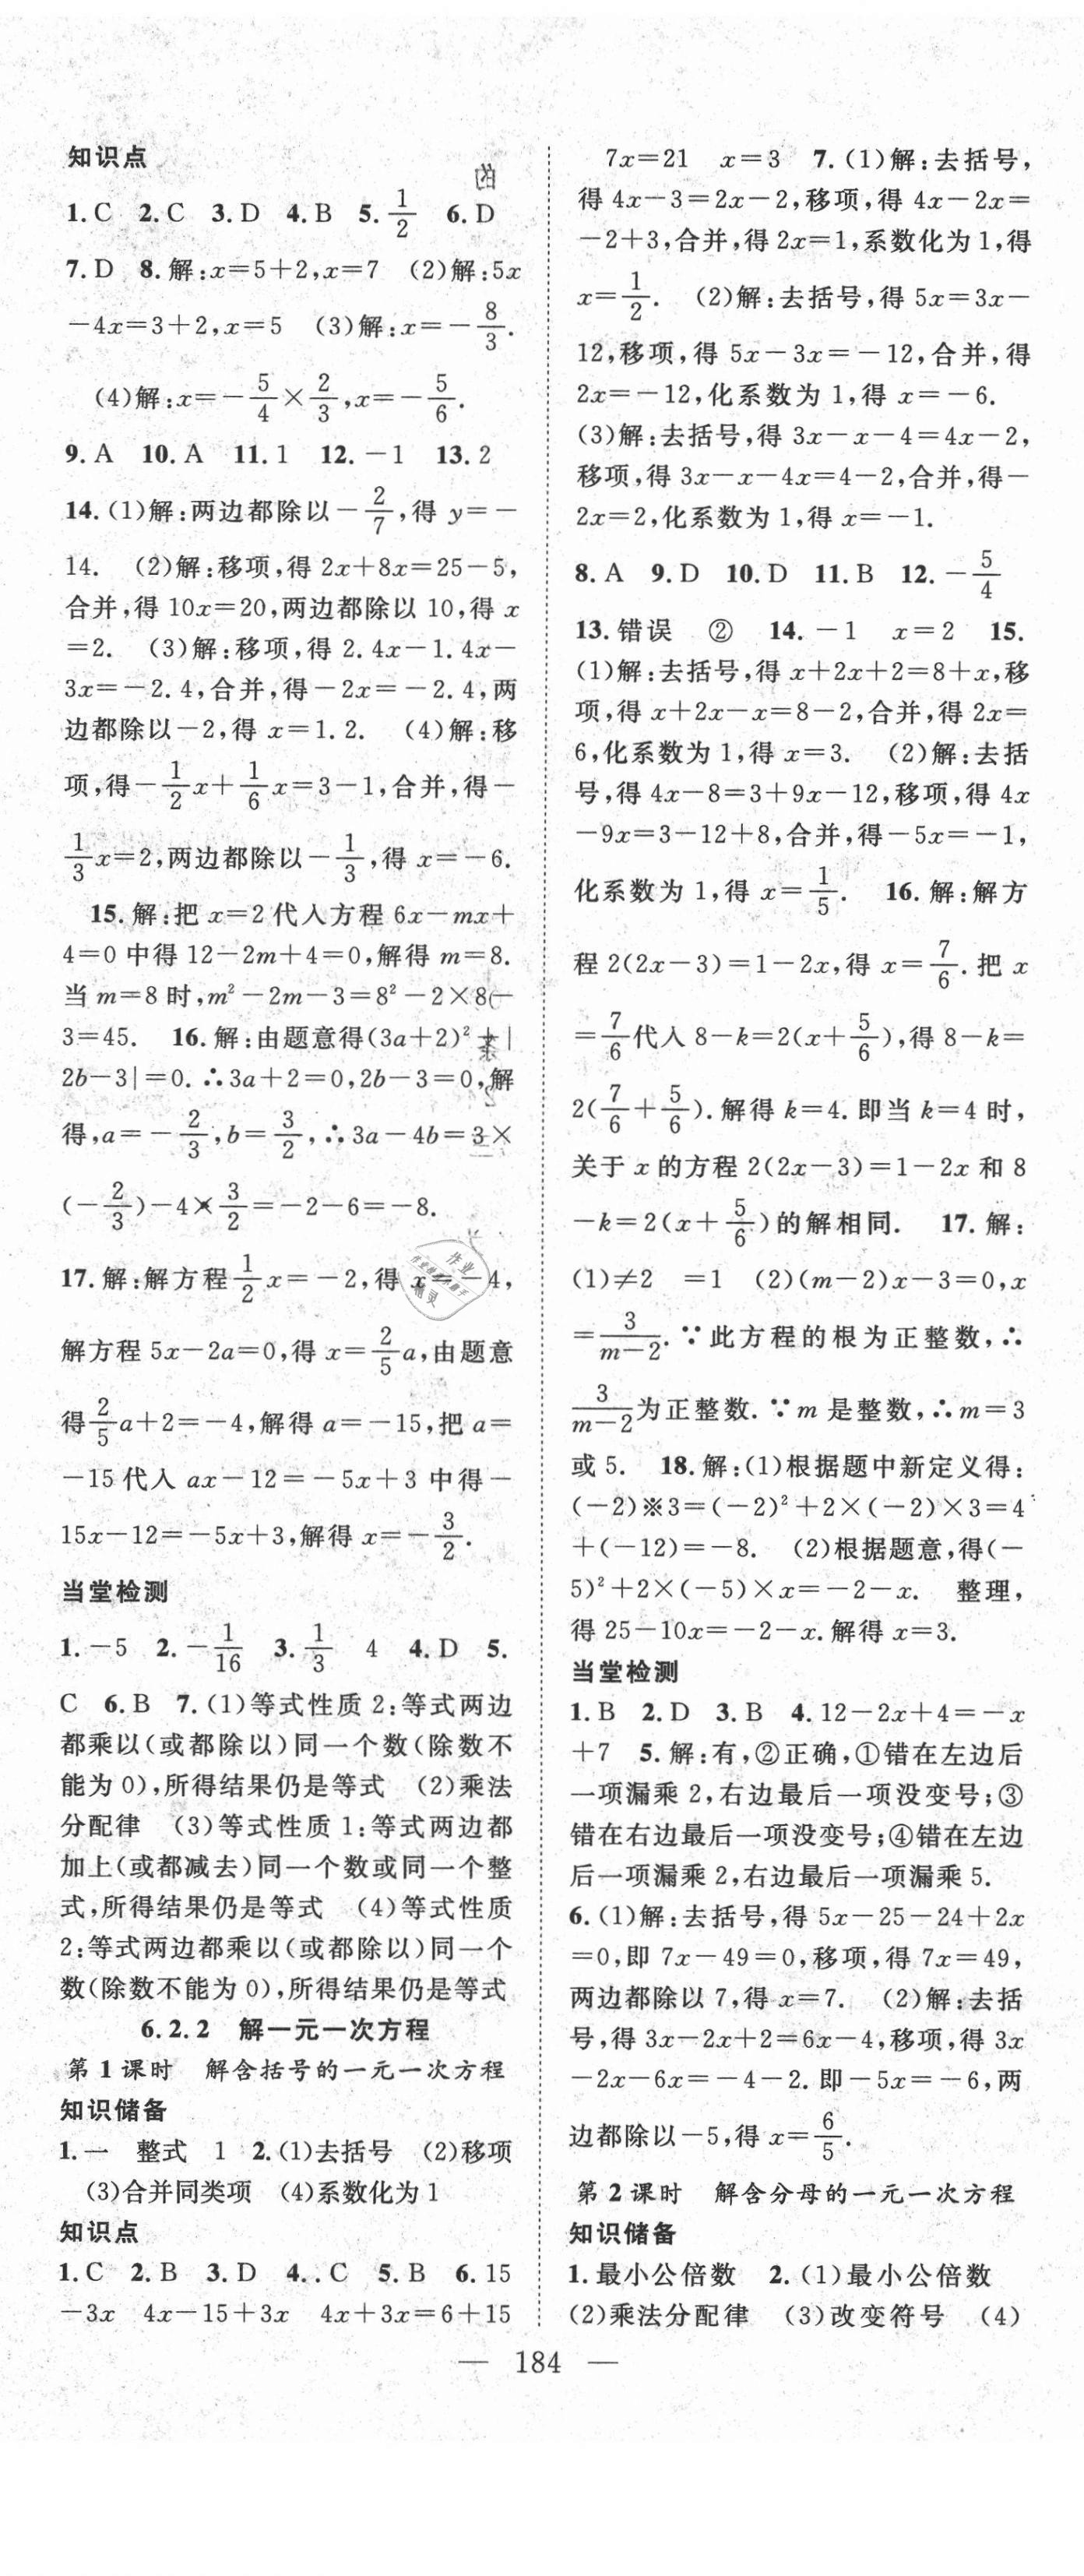 知识点
1. C 2. C 3. D 4. B 5. 1/2 6. D
7. D 8. 解:x=5+2,x=7 (2)解:5x
-4x=3+2,x=5 (3)解:x=-8/3.
(4)解:x=-5/4×2/3,x=-5/6.
9. A 10. A 11. 1 12. -1 13. 2
14. (1)解:两边都除以-2/7,得 y=-
14. (2)解:移项,得 2x+8x=25-5,
合并,得 10x=20,两边都除以 10,得 x
=2. (3)解:移项,得 2.4x-1.4x-
3x=-2.4,合并,得-2x=-2.4,两
边都除以-2,得 x=1.2. (4)解:移
项,得-1/2x+1/6x=3-1,合并,得-
1/3x=2,两边都除以-1/3,得 x=-6.
15. 解:把 x=2 代入方程 6x-mx+
4=0 中得 12-2m+4=0,解得 m=8.
当 m=8 时,m²-2m-3=8²-2×8-
3=45. 16. 解:由题意得(3a+2)²+|
2b-3|=0. ∴3a+2=0,2b-3=0,解
得,a=-2/3,b=3/2,∴3a-4b=3×
(-2/3)-4×3/2=-2-6=-8.
17. 解:解方程1/2x=-2,得 x=-4,
解方程 5x-2a=0,得 x=2/5a,由题意
得2/5a+2=-4,解得 a=-15,把 a=
-15 代入 ax-12=-5x+3 中得-
15x-12=-5x+3,解得 x=-3/2.
当堂检测
1. -5 2. -1/16 3. 1/3 4 4. D 5.
C 6. B 7. (1)等式性质 2:等式两边
都乘以(或都除以)同一个数(除数不
能为 0),所得结果仍是等式 (2)乘法
分配律 (3)等式性质 1:等式两边都
加上(或都减去)同一个数或同一个整
式,所得结果仍是等式 (4)等式性质
2:等式两边都乘以(或都除以)同一个
数(除数不能为 0),所得结果仍是等式
6.2.2 解一元一次方程
第 1 课时 解含括号的一元一次方程
知识储备
1. 一 整式 1 2. (1)去括号 (2)移项
(3)合并同类项 (4)系数化为 1
知识点
1. C 2. B 3. D 4. . C 5. B 6. 15
-3x 4x-15+3x 4x+3x=6+15
7x=21 x=3 7. (1)解:去括号,
得 4x-3=2x-2,移项,得 4x-2x=
-2+3,合并,得 2x=1,系数化为 1,得
x=1/2. (2)解:去括号,得 5x=3x-
12,移项,得 5x-3x=-12,合并,得
2x=-12,化系数为 1,得 x=-6.
(3)解:去括号,得 3x-x-4=4x-2,
移项,得 3x-x-4x=4-2,合并,得-
2x=2,化系数为 1,得 x=-1.
8. A 9. D 10. D 11. B 12. -5/4
13. 错误 ② 14. -1 x=2 15.
(1)解:去括号,得 x+2x+2=8+x,移
项,得 x+2x-x=8-2,合并,得 2x=
6,化系数为 1,得 x=3. (2)解:去括
号,得 4x-8=3+9x-12,移项,得 4x
-9x=3-12+8,合并,得-5x=-1,
化系数为 1,得 x=1/5. 16. 解:解方
程 2(2x-3)=1-2x,得 x=7/6. 把 x
=7/6代入 8-k=2(x+5/6),得 8-k=
2(7/6+5/6). 解得 k=4. 即当 k=4 时,
关于 x 的方程 2(2x-3)=1-2x 和 8
-k=2(x+5/6)的解相同. 17. 解:
(1)≠2 =1 (2)(m-2)x-3=0,x
=3/(m-2). ∵此方程的根为正整数,∴
3/(m-2)为正整数. ∵m 是整数,∴m=3
或 5. 18. 解:(1)根据题中新定义得:
(-2)※3=(-2)²+2×(-2)×3=4
+(-12)=-8. (2)根据题意,得(-
5)²+2×(-5)×x=-2-x. 整理,
得 25-10x=-2-x. 解得 x=3.
当堂检测
1. B 2. D 3. B 4. 12-2x+4=-x
+7 5. 解:有,②正确,①错在左边后
一项漏乘 2,右边最后一项没变号;③
错在右边最后一项没变号;④错在左边
后一项漏乘 2,右边最后一项漏乘 5.
6. (1)解:去括号,得 5x-25-24+2x
=0,即 7x-49=0,移项,得 7x=49,
两边都除以 7,得 x=7. (2)解:去括
号,得 3x-2x+2=6x-4,移项,得 3x
-2x-6x=-4-2. 即-5x=-6,两
边都除以-5,得 x=6/5.
第 2 课时 解含分母的一元一次方程
知识储备
1. 最小公倍数 2. (1)最小公倍数
(2)乘法分配律 (3)改变符号 (4)
— 184 —